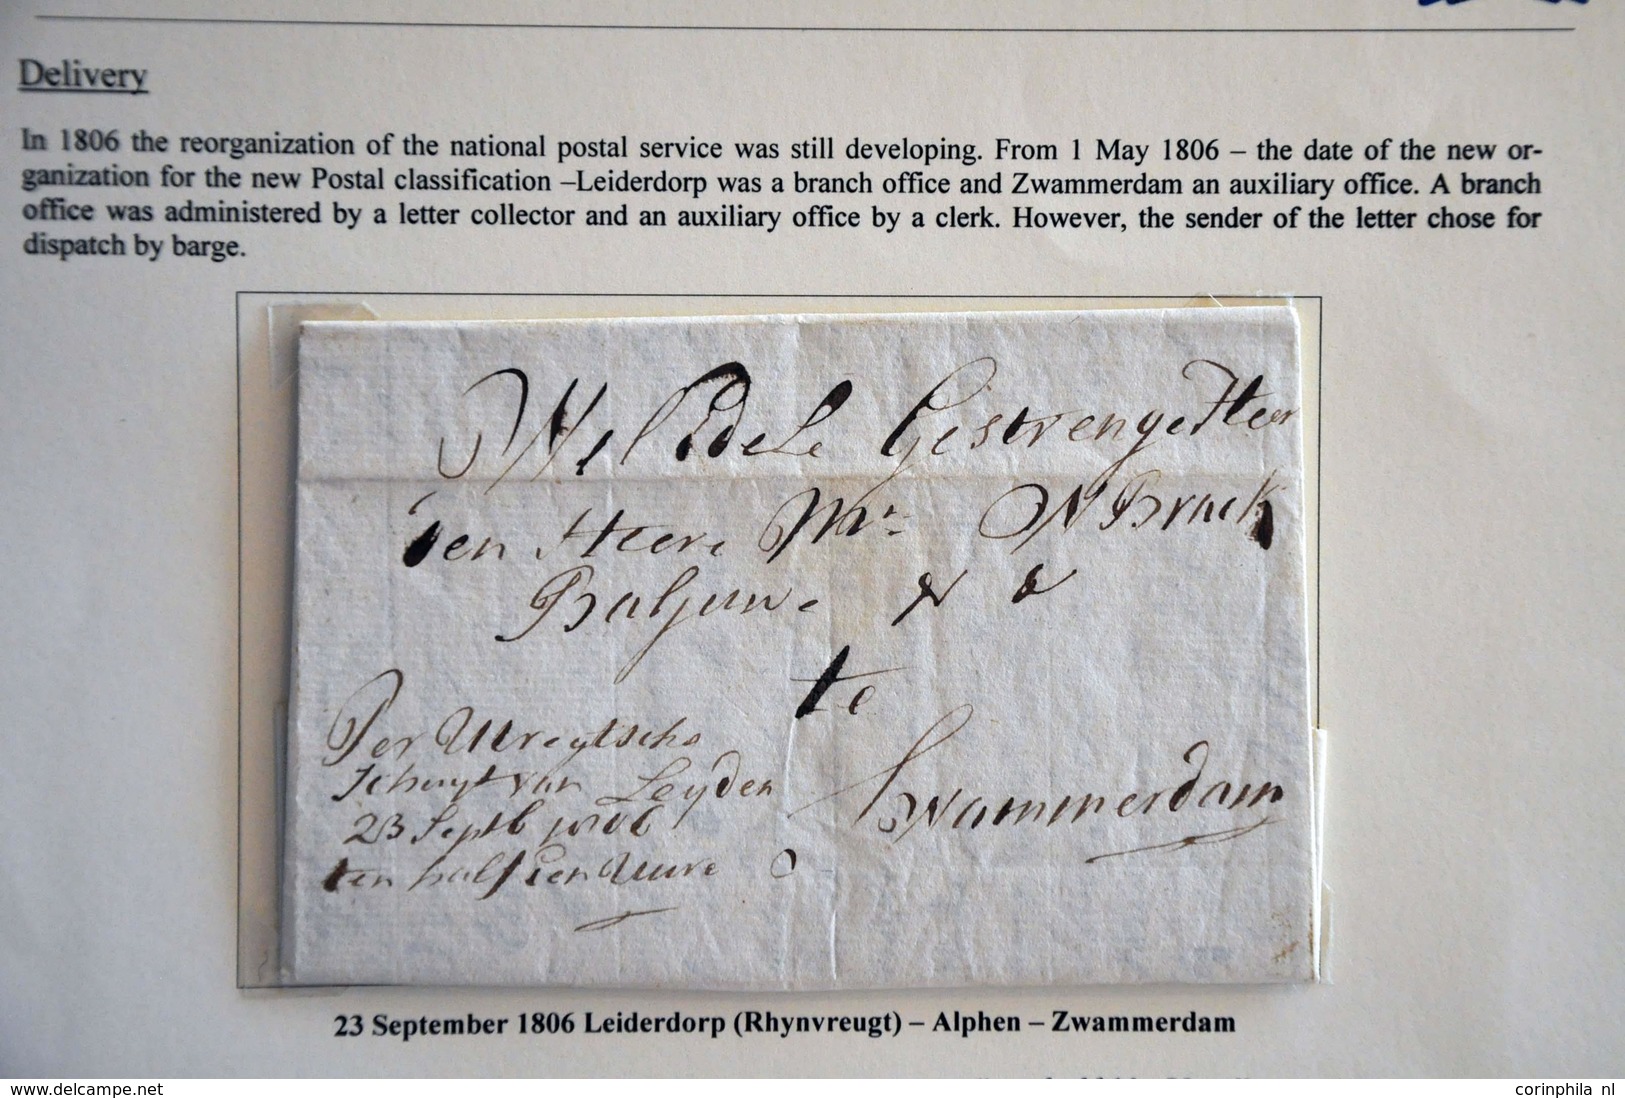 Delivery
In 1806 the reorganization of the national postal service was still developing. From 1 May 1806 – the date of the new or-
ganization for the new Postal classification –Leiderdorp was a branch office and Zwammerdam an auxiliary office. A branch
office was administered by a letter collector and an auxiliary office by a clerk. However, the sender of the letter chose for
dispatch by barge.
Wel Edele Gestrenge Heer
den Heere Mr. N Brack
Baljuw &
te
Swammerdam
Per Utregtsche
schuyt van Leyden
23 Septb 1806
ten half tien Uure
23 September 1806 Leiderdorp (Rhynvreugt) – Alphen – Zwammerdam
www.delcampe.net
corinphila nl